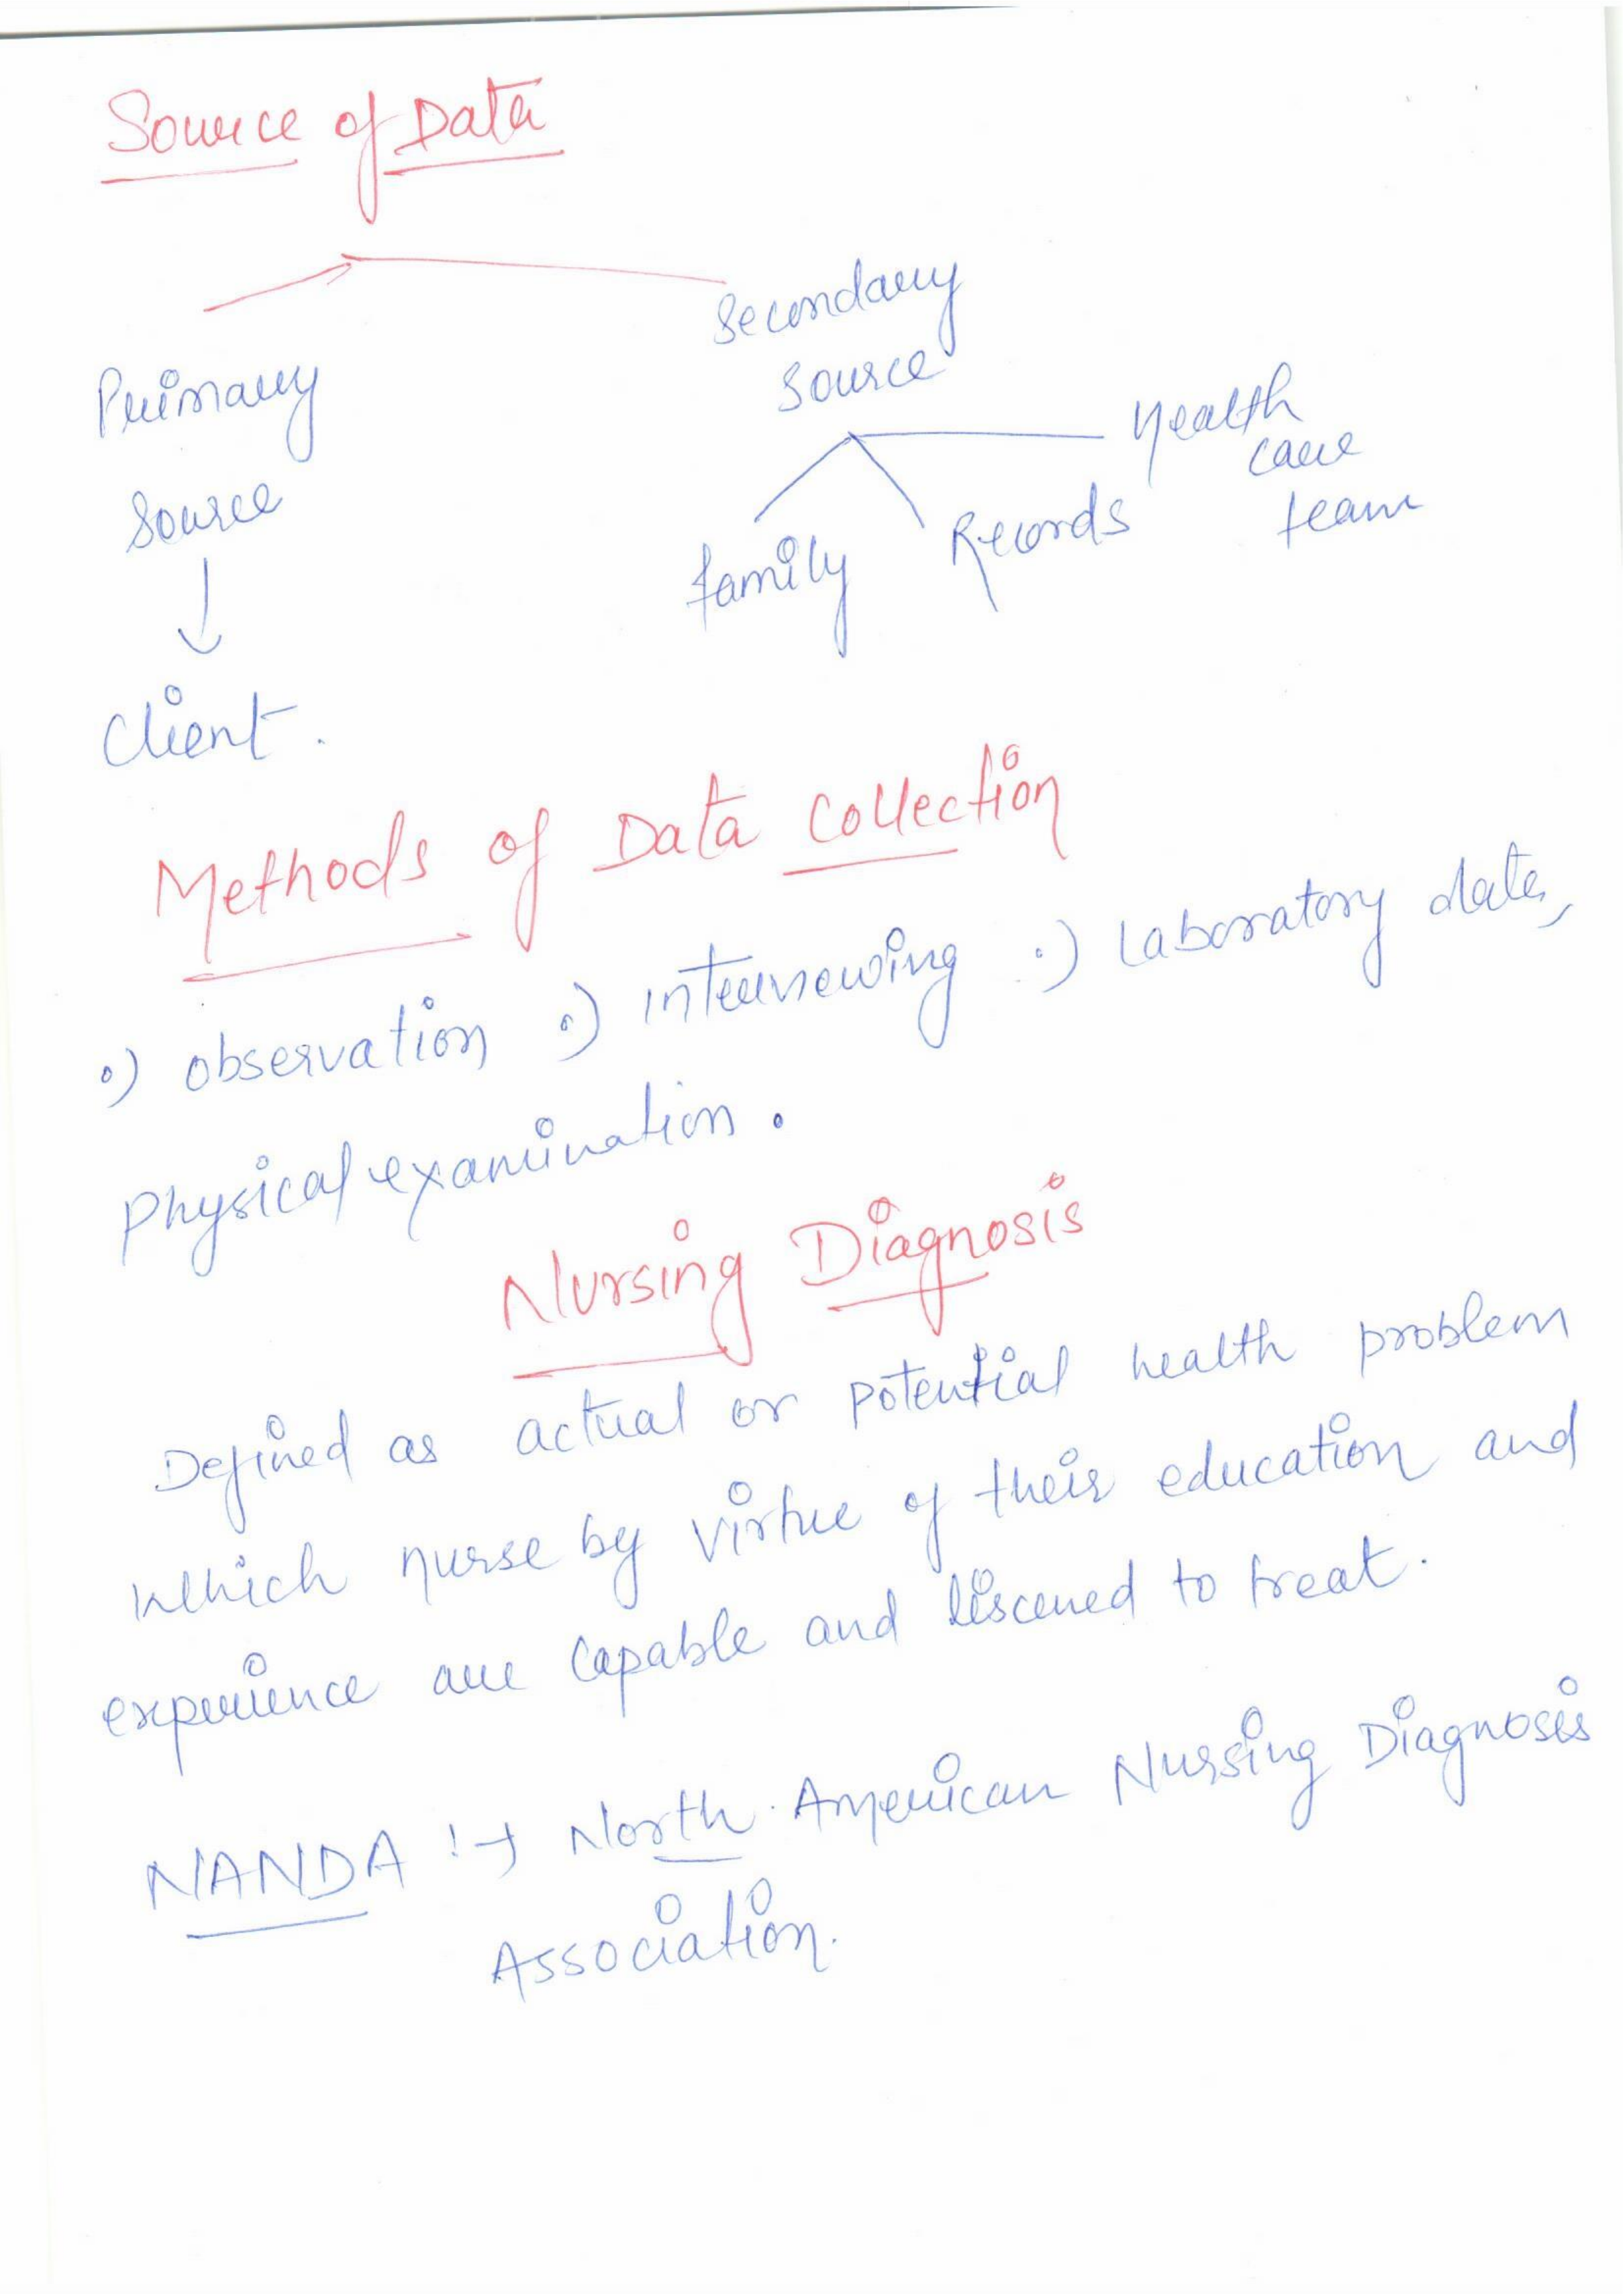 Source of Data
Primary
Source
Client.
Secondary
Source
family
Records
Health
care
team
Methods of Data Collection
•) observation •) interviewing •) Laboratory data,
Physical examination.
Nursing Diagnosis
Defined as actual or potential health problem
which nurse by virtue of their education and
experience are capable and liscened to treat.
NANDA :→ North American Nursing Diagnosis
Association.